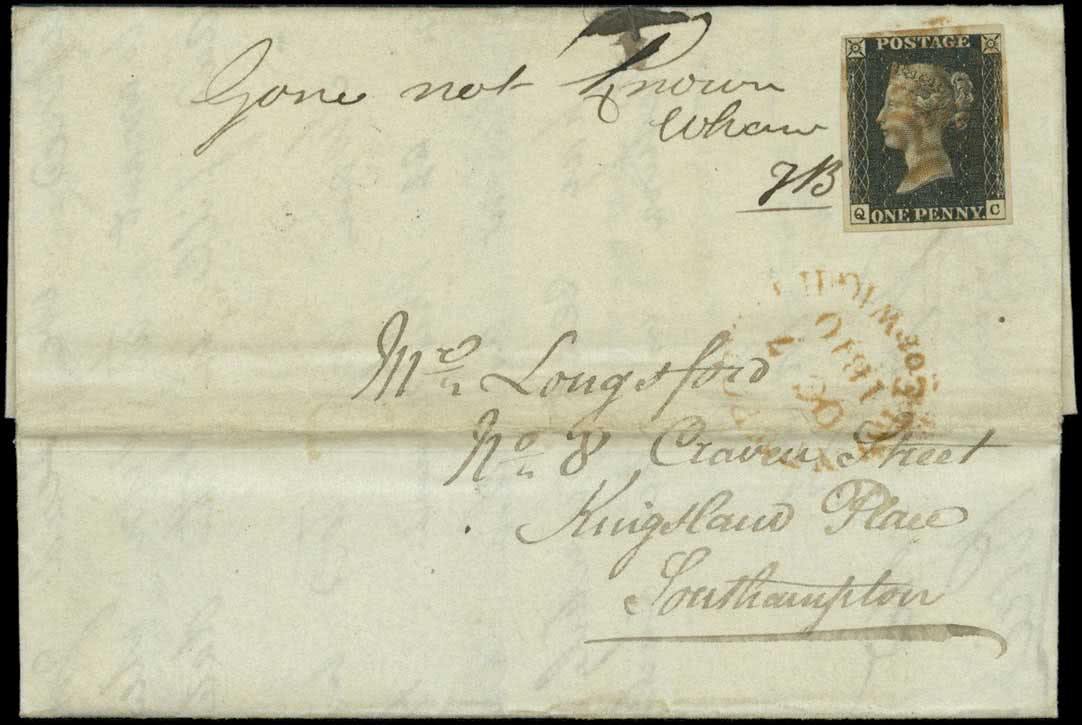 Gone not Known
Whare
JB
POSTAGE
Q ONE PENNY. C
Mrs Longsford
No 8 Craven Street
Kingsland Place
Southampton
OF WIGHT
OC 7
1840